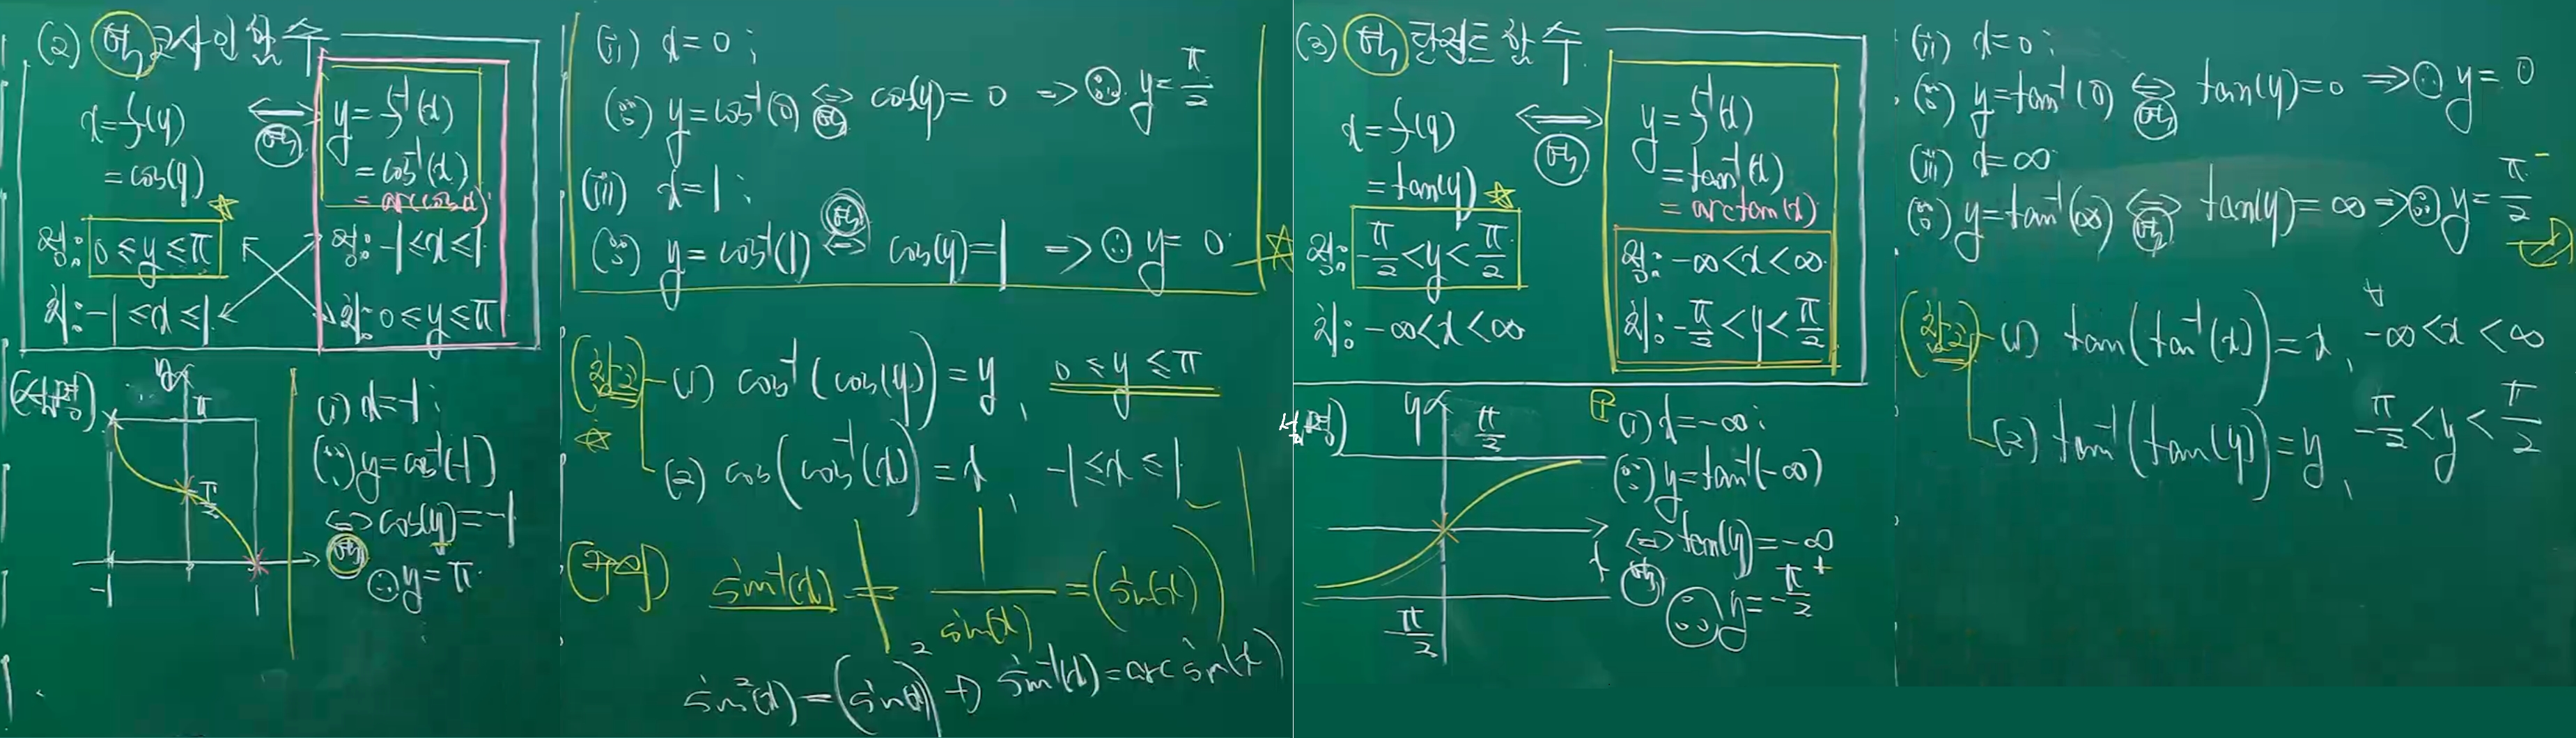 (2) 역 코사인 함수
x = f(y)
= cos(y)
⇔
역
y = f⁻¹(x)
= cos⁻¹(x)
= arccos(x)
정: 0 ≤ y ≤ π
치: -1 ≤ x ≤ 1
정: -1 ≤ x ≤ 1
치: 0 ≤ y ≤ π
y
π
π/2
-1
1
(i) x = -1 ;
(∵) y = cos⁻¹(-1)
⇔ cos(y) = -1
역
∴ y = π
(ii) x = 0 ;
(∵) y = cos⁻¹(0) ⇔ cos(y) = 0 ⇒ ∴ y = π/2
역
(iii) x = 1 ;
역
(∵) y = cos⁻¹(1) ⇔ cos(y) = 1 ⇒ ∴ y = 0
(1) cos⁻¹(cos(y)) = y, 0 ≤ y ≤ π
(2) cos(cos⁻¹(x)) = x, -1 ≤ x ≤ 1
(주의) sin⁻¹(x) ≠ 1/sin(x) = (sin(x))⁻¹
sin²(x) = (sin(x))² → sin⁻¹(x) = arcsin(x)
(3) 역 탄젠트 함수
x = f(y)
= tan(y)
⇔
역
y = f⁻¹(x)
= tan⁻¹(x)
= arctan(x)
정: -π/2 < y < π/2
치: -∞ < x < ∞
정: -∞ < x < ∞
치: -π/2 < y < π/2
y
π/2
x
-π/2
(i) x = -∞ ;
(∵) y = tan⁻¹(-∞)
⇔ tan(y) = -∞
역
∴ y = -π/2⁺
(ii) x = 0 ;
(∵) y = tan⁻¹(0) ⇔ tan(y) = 0 ⇒ ∴ y = 0
역
(iii) x = ∞
(∵) y = tan⁻¹(∞) ⇔ tan(y) = ∞ ⇒ ∴ y = π/2⁻
역
(1) tan(tan⁻¹(x)) = x, ∀ -∞ < x < ∞
(2) tan⁻¹(tan(y)) = y, -π/2 < y < π/2